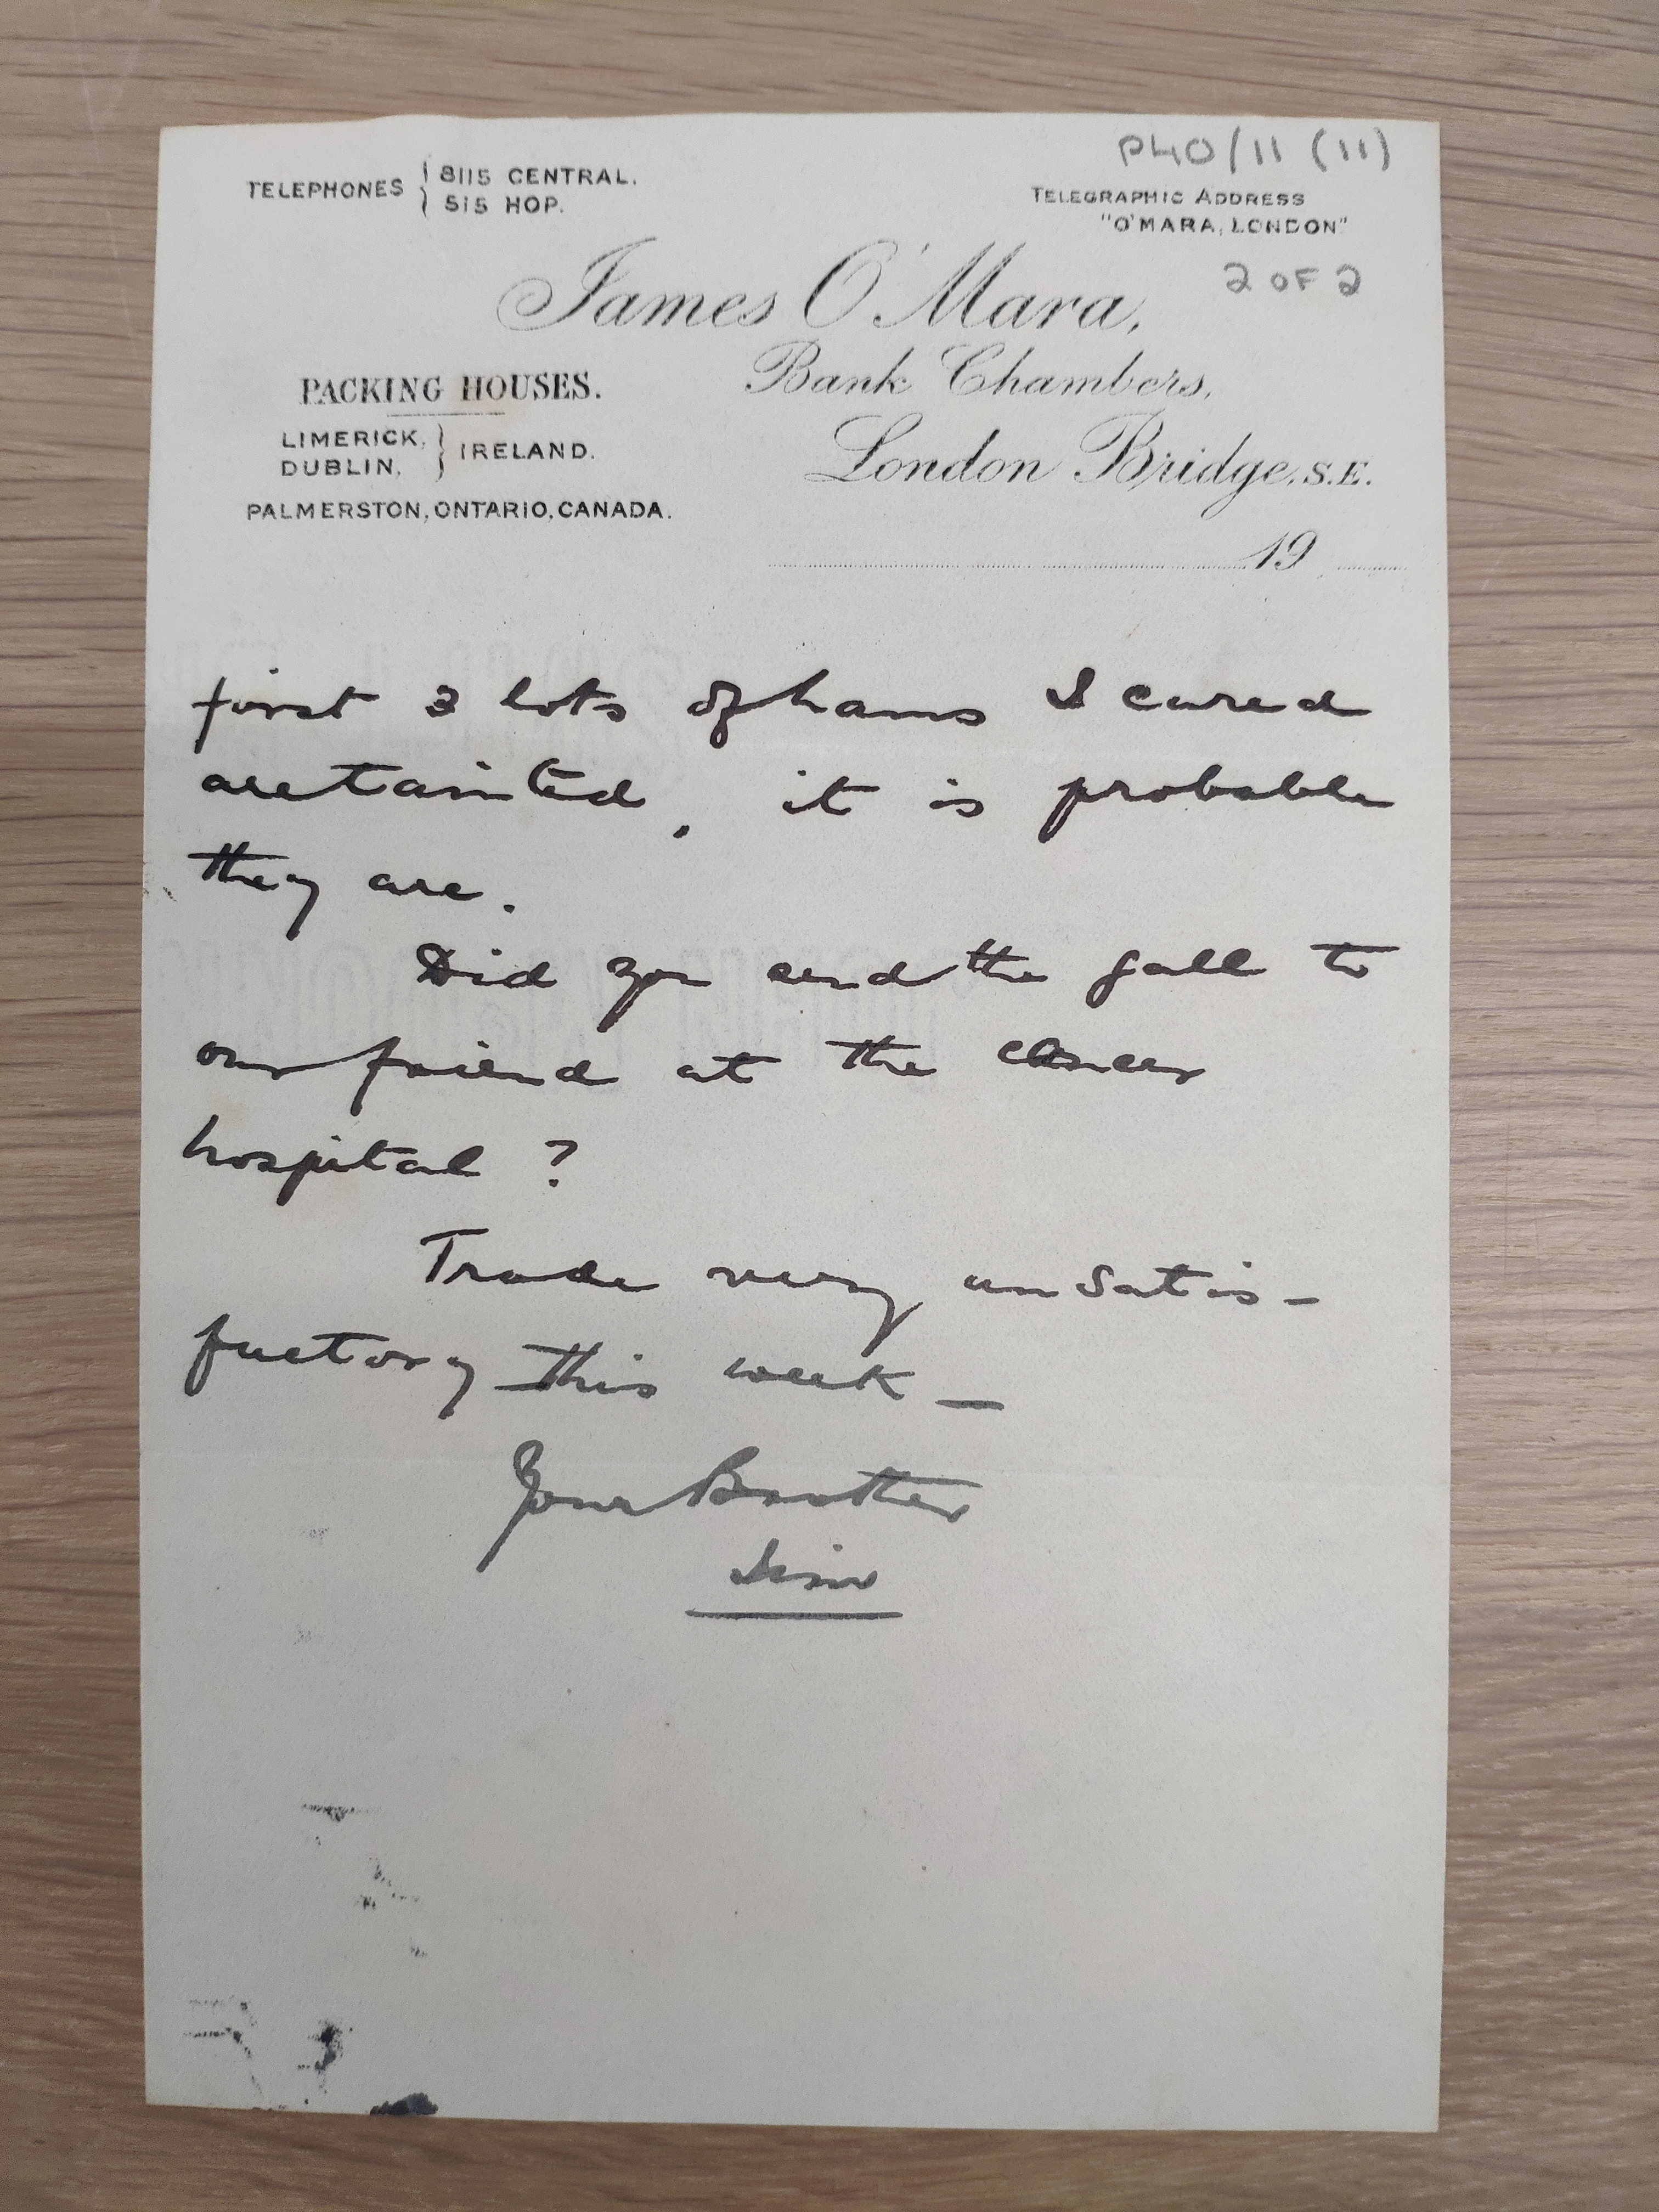 P40/11 (11)
TELEPHONES { 8115 CENTRAL.
515 HOP.
TELEGRAPHIC ADDRESS
"O'MARA, LONDON"
2 OF 2
James O'Mara,
Bank Chambers,
London Bridge, S.E.
PACKING HOUSES.
LIMERICK,
DUBLIN, } IRELAND.
PALMERSTON, ONTARIO, CANADA.
19
first 3 lots of hams I cured
are tainted, it is probable
they are.
Did you send the gall to
our friend at the cancer
hospital ?
Trade very unsatis-
factory this week —
Your Brother
Jim